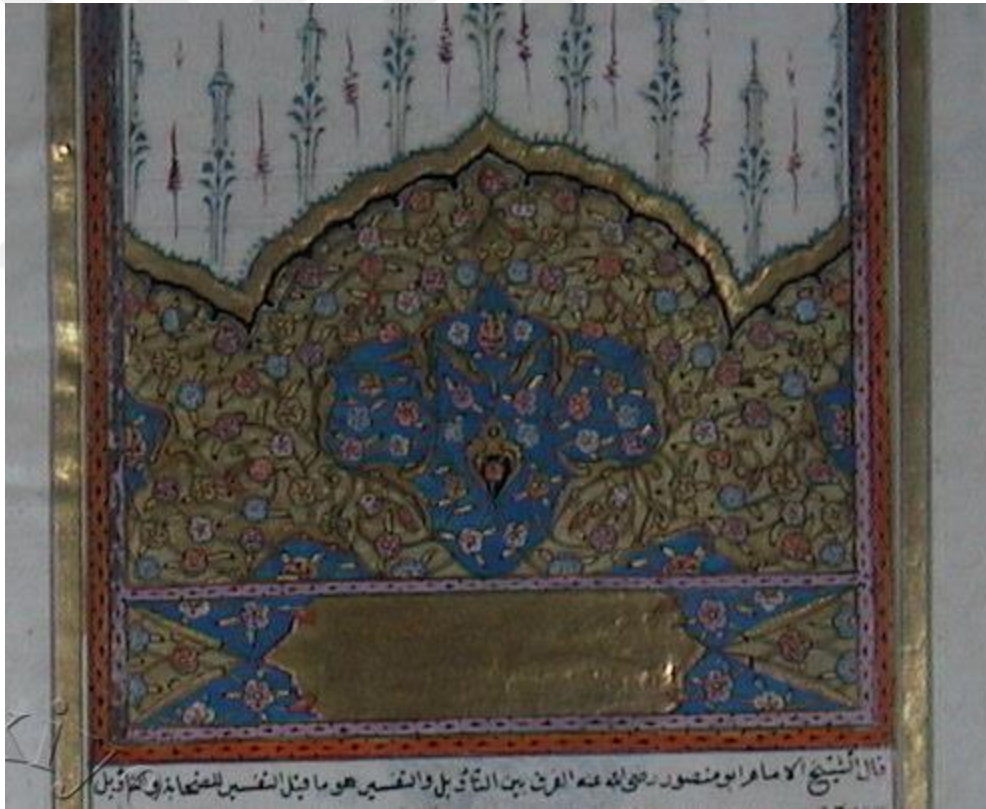 قال الشيخ الامام ابو منصور رضى الله عنه الفرق بين التاويل والتفسير هو ما قيل التفسير للصحابة